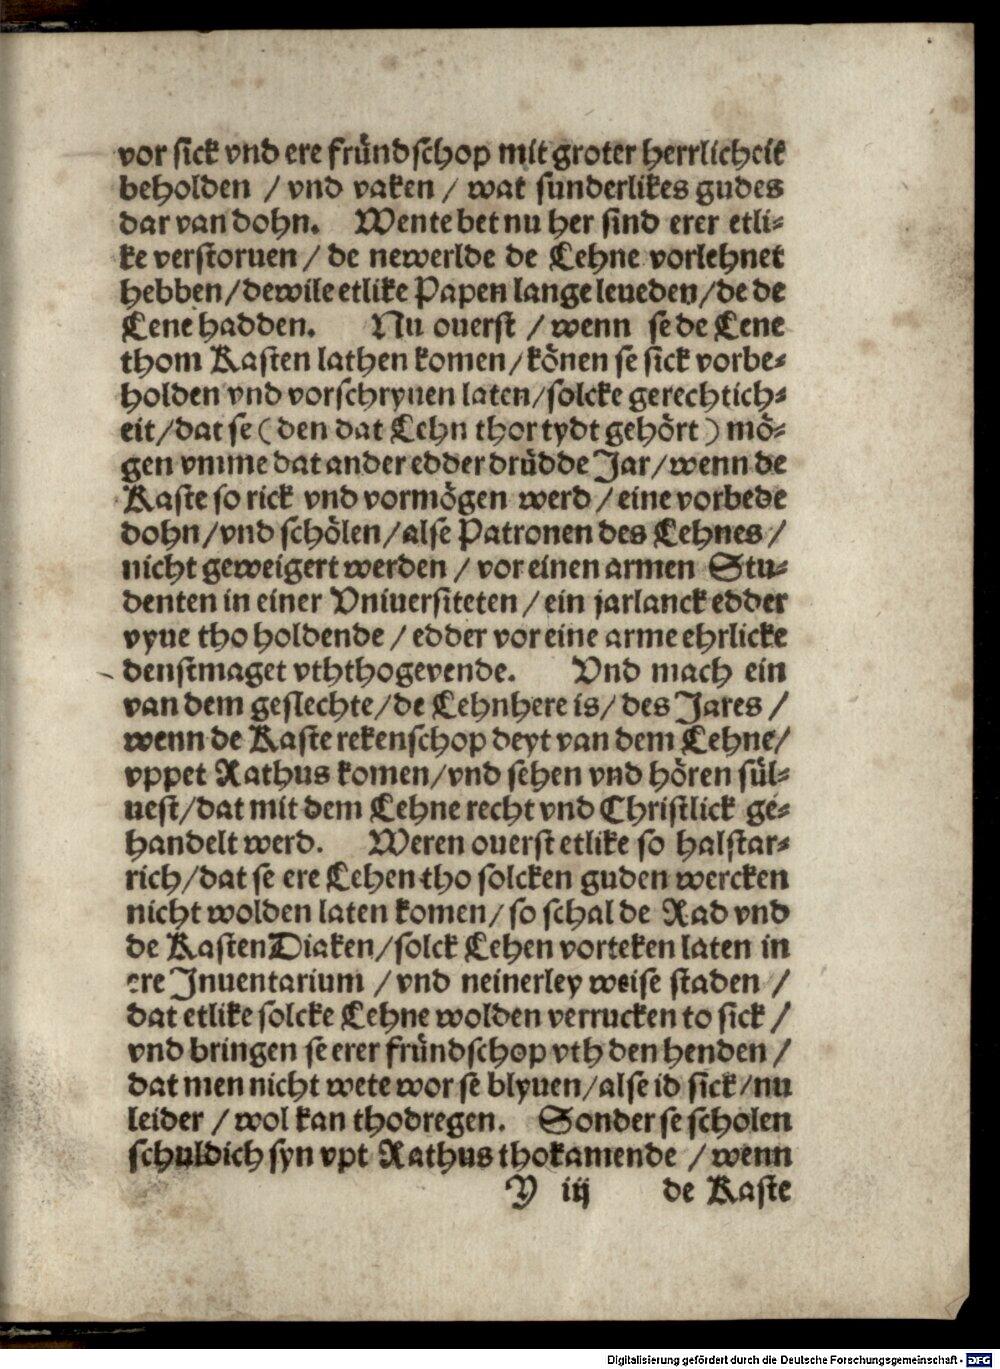 vor sick vnd ere fründschop mit groter herrlicheit
beholden / vnd vaken / wat sunderlikes gudes
dar van dohn. Wente bet nu her sind erer etli⸗
ke verstoruen / de newerlde de Lehne vorlehnet
hebben / dewile etlike Papen lange leueden / de de
Lene hadden. Nu ouerst / wenn se de Lene
thom Kasten lathen komen / könen se sick vorbe⸗
holden vnd vorschryuen laten / solcke gerechtich⸗
eit / dat se ( den dat Lehn thor tydt gehört ) mö⸗
gen vmme dat ander edder drüdde Jar / wenn de
Kaste so rick vnd vormögen werd / eine vorbede
dohn / vnd schölen / alse Patronen des Lehnes /
nicht geweigert werden / vor einen armen Stu⸗
denten in einer Vniuersiteten / ein jarlanck edder
vyue tho holdende / edder vor eine arme ehrlicke
denstmaget vththogevende. Vnd mach ein
van dem geslechte / de Lehnhere is / des Jares /
wenn de Kaste rekenschop deyt van dem Lehne /
vppet Rathus komen / vnd sehen vnd hören sül⸗
uest / dat mit dem Lehne recht vnd Christlick ge⸗
handelt werd. Weren ouerst etlike so halstar⸗
rich / dat se ere Lehen tho solcken guden wercken
nicht wolden laten komen / so schal de Rad vnd
de Kasten Diaken / solck Lehen vorteken laten in
ere Inuentarium / vnd neinerley weise staden /
dat etlike solcke Lehne wolden verrucken to sick /
vnd bringen se erer fründschop vth den henden /
dat men nicht wete wor se blyuen / alse id sick / nu
leider / wol kan thodregen. Sonder se scholen
schuldich syn vpt Rathus thokamende / wenn
V iij de Kaste
Digitalisierung gefördert durch die Deutsche Forschungsgemeinschaft - DFG